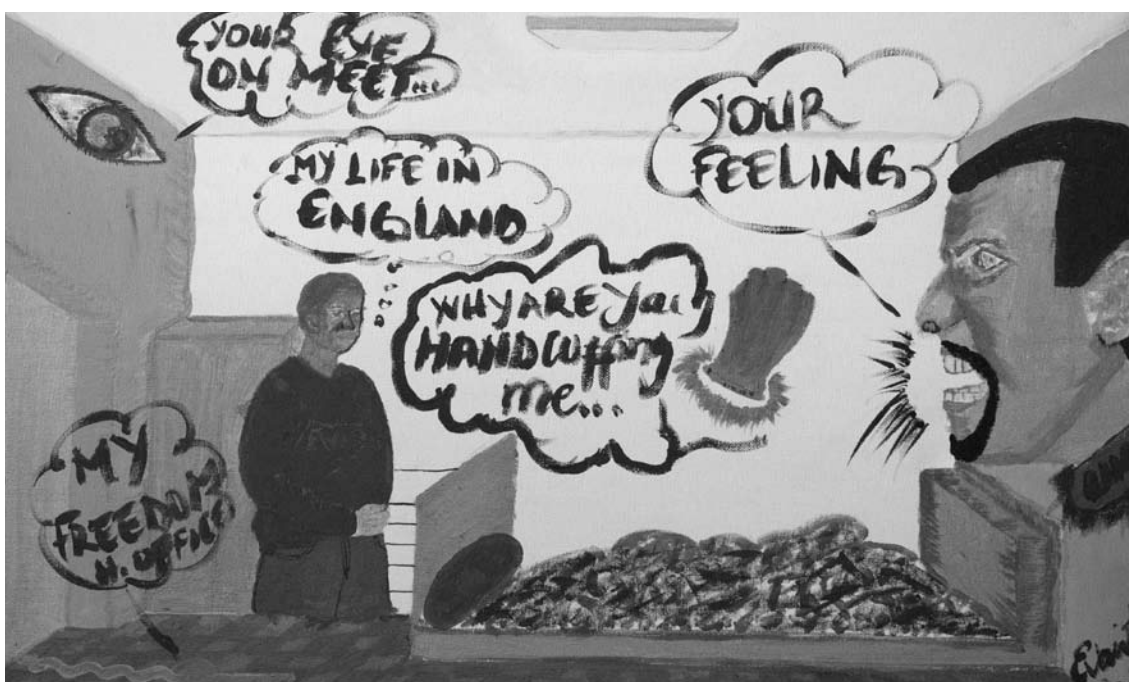 YOUR EYE
ON MEET...
MY LIFE IN
ENGLAND
YOUR
FEELING
WHY ARE You
HANDCUffing
me...
MY
FREEDOM
H. OFFICE